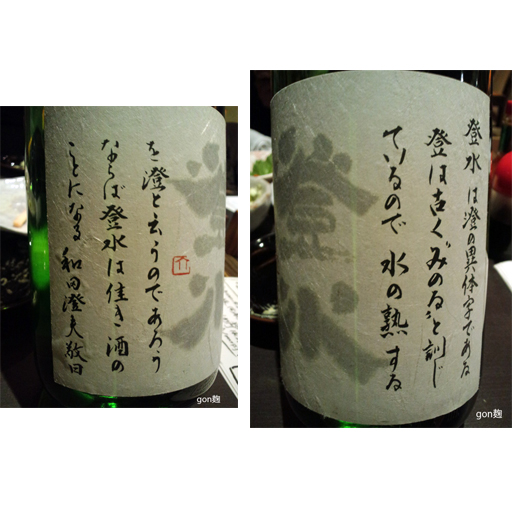 登水は澄の異体字である
登は古く〝みのる〟と訓じ
ているので 水の熟する
登水
gon麹
を澄と云うのであろう
ならば登水は佳き酒の
ことになる 和田澄夫敬白
登水
gon麹